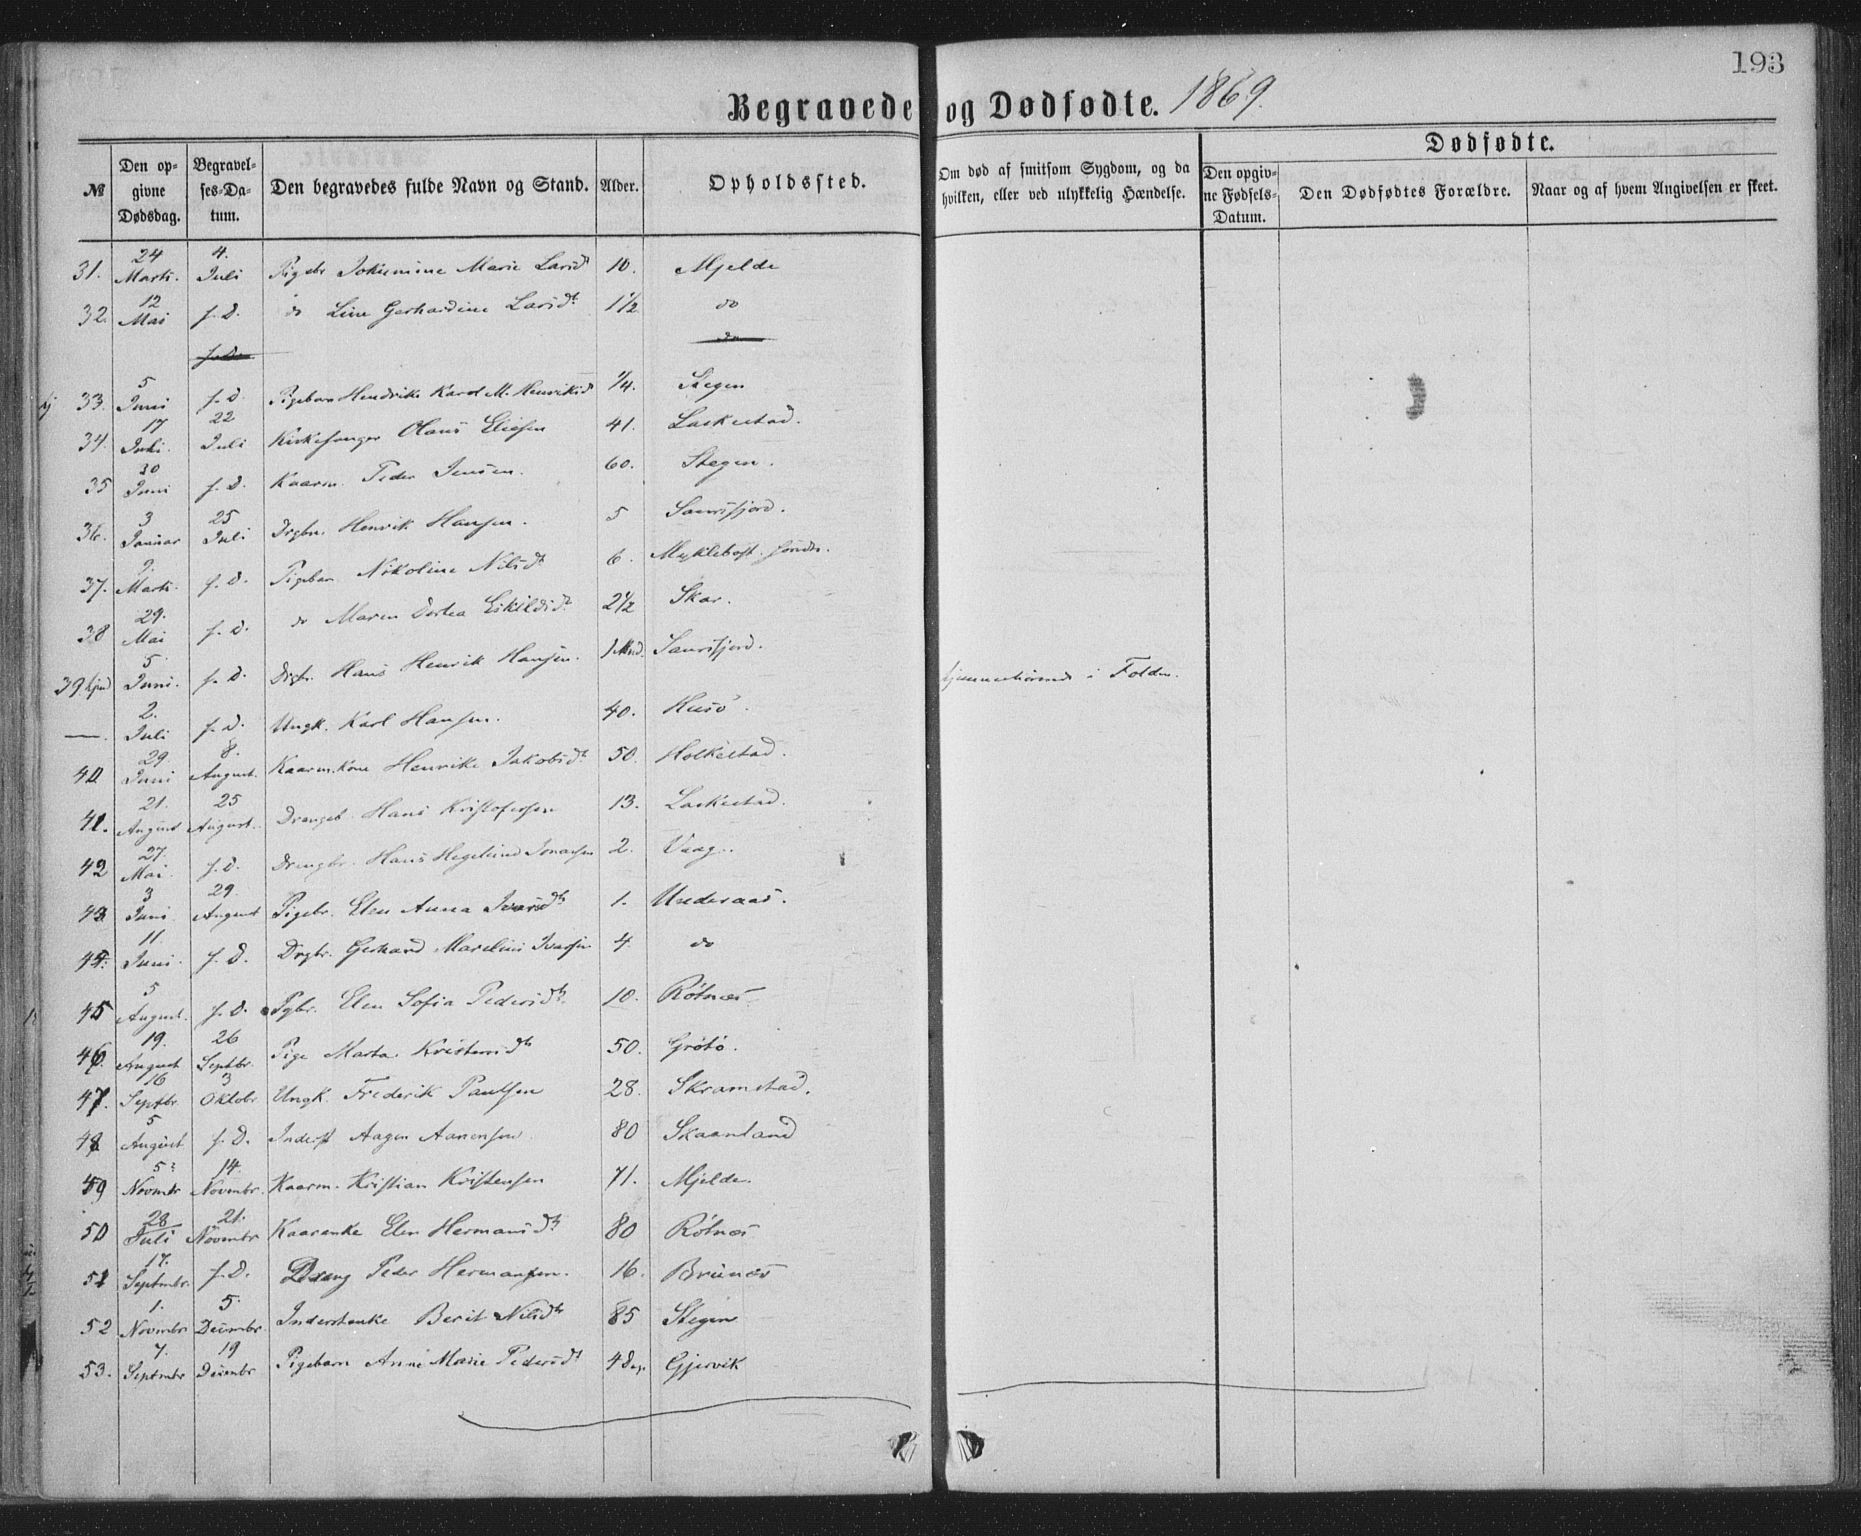 193
Begravede og Dødfødte. 1869.
№ Den opgivne Dødsdag. Begravelses-Datum. Den begravedes fulde Navn og Stand. Alder. Opholdssted. Om død af smitsom Sygdom, og da hvilken, eller ved ulykkelig Hændelse. Dødfødte. Den opgivne Fødsels-Datum. Den Dødfødtes Forældre. Naar og af hvem Angivelsen er skeet.
31. 24 Marts. 4. Juli Pigebr Jokumine Marie Larsdt 10. Mjelde
32. 12 Mai s. D. do Line Gerhardine Larsdt 1 1/2 do
s. D. do
33. 5 Juni s. D. Pigebarn Hendrike Karol M. Henriksd 1/4. Stegen
34. 17 Juli. 22 Juli Kirkesanger Olaus Eliesen 41. Laskestad.
35 30 Juni s. D. Kaarm. Peder Jensen. 60. Stegen.
36. 3 Januar 25 Juli Drgbn. Henrik Hansen. 5 Saursfjord.
37. 9. Marts. s. D. Pigebarn Nikoline Nilsdt 6. Myklebost
38 29. Mai s. D. do Maren Dortea Eskildsdt 2 1/2 Skar.
39 hjmd 5 Juni. s. D. Drgbr. Hans Henrik Hansen. 1 Mnd. Saursfjord. i Folden.
— 2. Juli s. D. Ungk. Karl Hansen. 40. Husö.
40 29 Juni 8. August. Kaarm.kone Henrike Jakobsdt 50. Holkestad.
41. 21. August 25 August. Drengeb. Hans Kristofersen 13. Laskestad.
42 27. Mai. s. D. Drengbr. Hans Hegelund Jonassen 2. Vaag.
43. 3 Juni 29. August Pigebr. Elen Anna Ivarsdtr 1. Underaas.
44. 11. Juni. s. D. Drgbr. Gerhard Marelius Ivarsen 4. do
45 5 August. s. D. Pgbr. Elen Sofia Pedersdtr. 10. Rötnæs
46. 19. August 26 Septbr. Pige Marta Kristensdtr 50. Grötö.
47. 16 Septbr. 3 Oktobr Ungk. Frederik Paulsen 28. Skramstad.
48 5 August s. D. Inderst Aagen Aanensen 80 Skaanland
49 5 Novmbr 14. Novmbr. Kaarm. Kristian Kristensen 71. Mjelde.
50 28 Juli 21. Novmbr Kaarenke Elen Hermansdtr 80 Rötnæs
51 17. Septmbr. s. D. Dreng Peder Hermansen. 16. Brunæs
52 1. Novmbr 5 Decmbr. Inderstenke Berit Nilsdtr 85 Stegen
53. 7. Septmbr 19 Decmbr Pigebarn Anne Marie Pedersdt 4 Dag. Gjervik